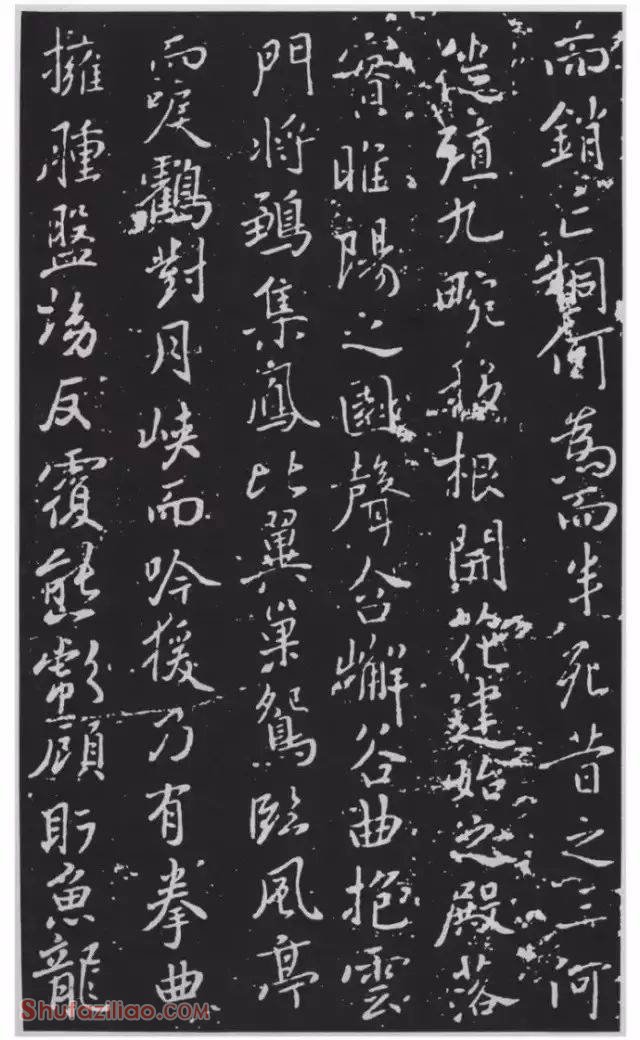 而銷亡桐何為而半死昔之三河
徙殖九畹移根開花建始之殿落
實睢陽之園聲含嶰谷曲抱雲
門將鵄集鳳比翼巢鴛臨風亭
而唳鸛對月峽而吟猨乃有拳曲
擁腫盤坳反覆熊彪顧盻魚龍
Shufaziliao.com